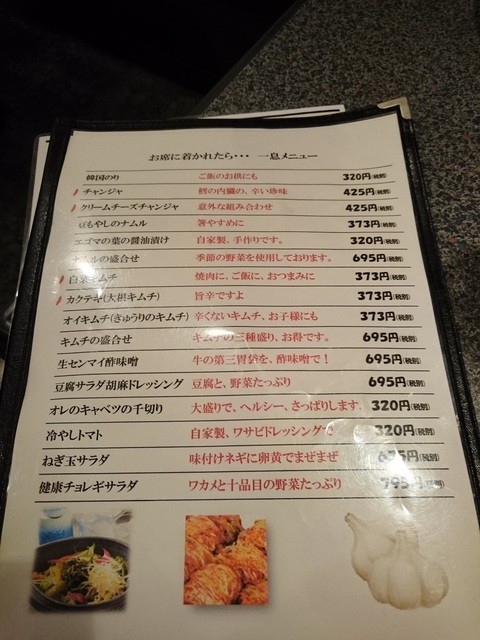 お席に着かれたら・・・ 一息メニュー
韓国のり ご飯のお供にも 320円(税別)
チャンジャ 鱈の内臓の、辛い珍味 425円(税別)
クリームチーズチャンジャ 意外な組み合わせ 425円(税別)
豆もやしのナムル 箸やすめに 373円(税別)
エゴマの葉の醤油漬け 自家製、手作りです。 320円(税別)
ナムルの盛合せ 季節の野菜を使用しております。 695円(税別)
白菜キムチ 焼肉に、ご飯に、おつまみに 373円(税別)
カクテキ(大根キムチ) 旨辛ですよ 373円(税別)
オイキムチ(きゅうりのキムチ) 辛くないキムチ、お子様にも 373円(税別)
キムチの盛合せ キムチの三種盛り、お得です。 695円(税別)
生センマイ酢味噌 牛の第三胃袋を、酢味噌で! 695円(税別)
豆腐サラダ胡麻ドレッシング 豆腐と、野菜たっぷり 695円(税別)
オレのキャベツの千切り 大盛りで、ヘルシー、さっぱりします。 320円(税別)
冷やしトマト 自家製、ワサビドレッシングで 320円(税別)
ねぎ玉サラダ 味付けネギに卵黄でまぜまぜ 円(税別)
健康チョレギサラダ ワカメと十品目の野菜たっぷり 795円(税別)